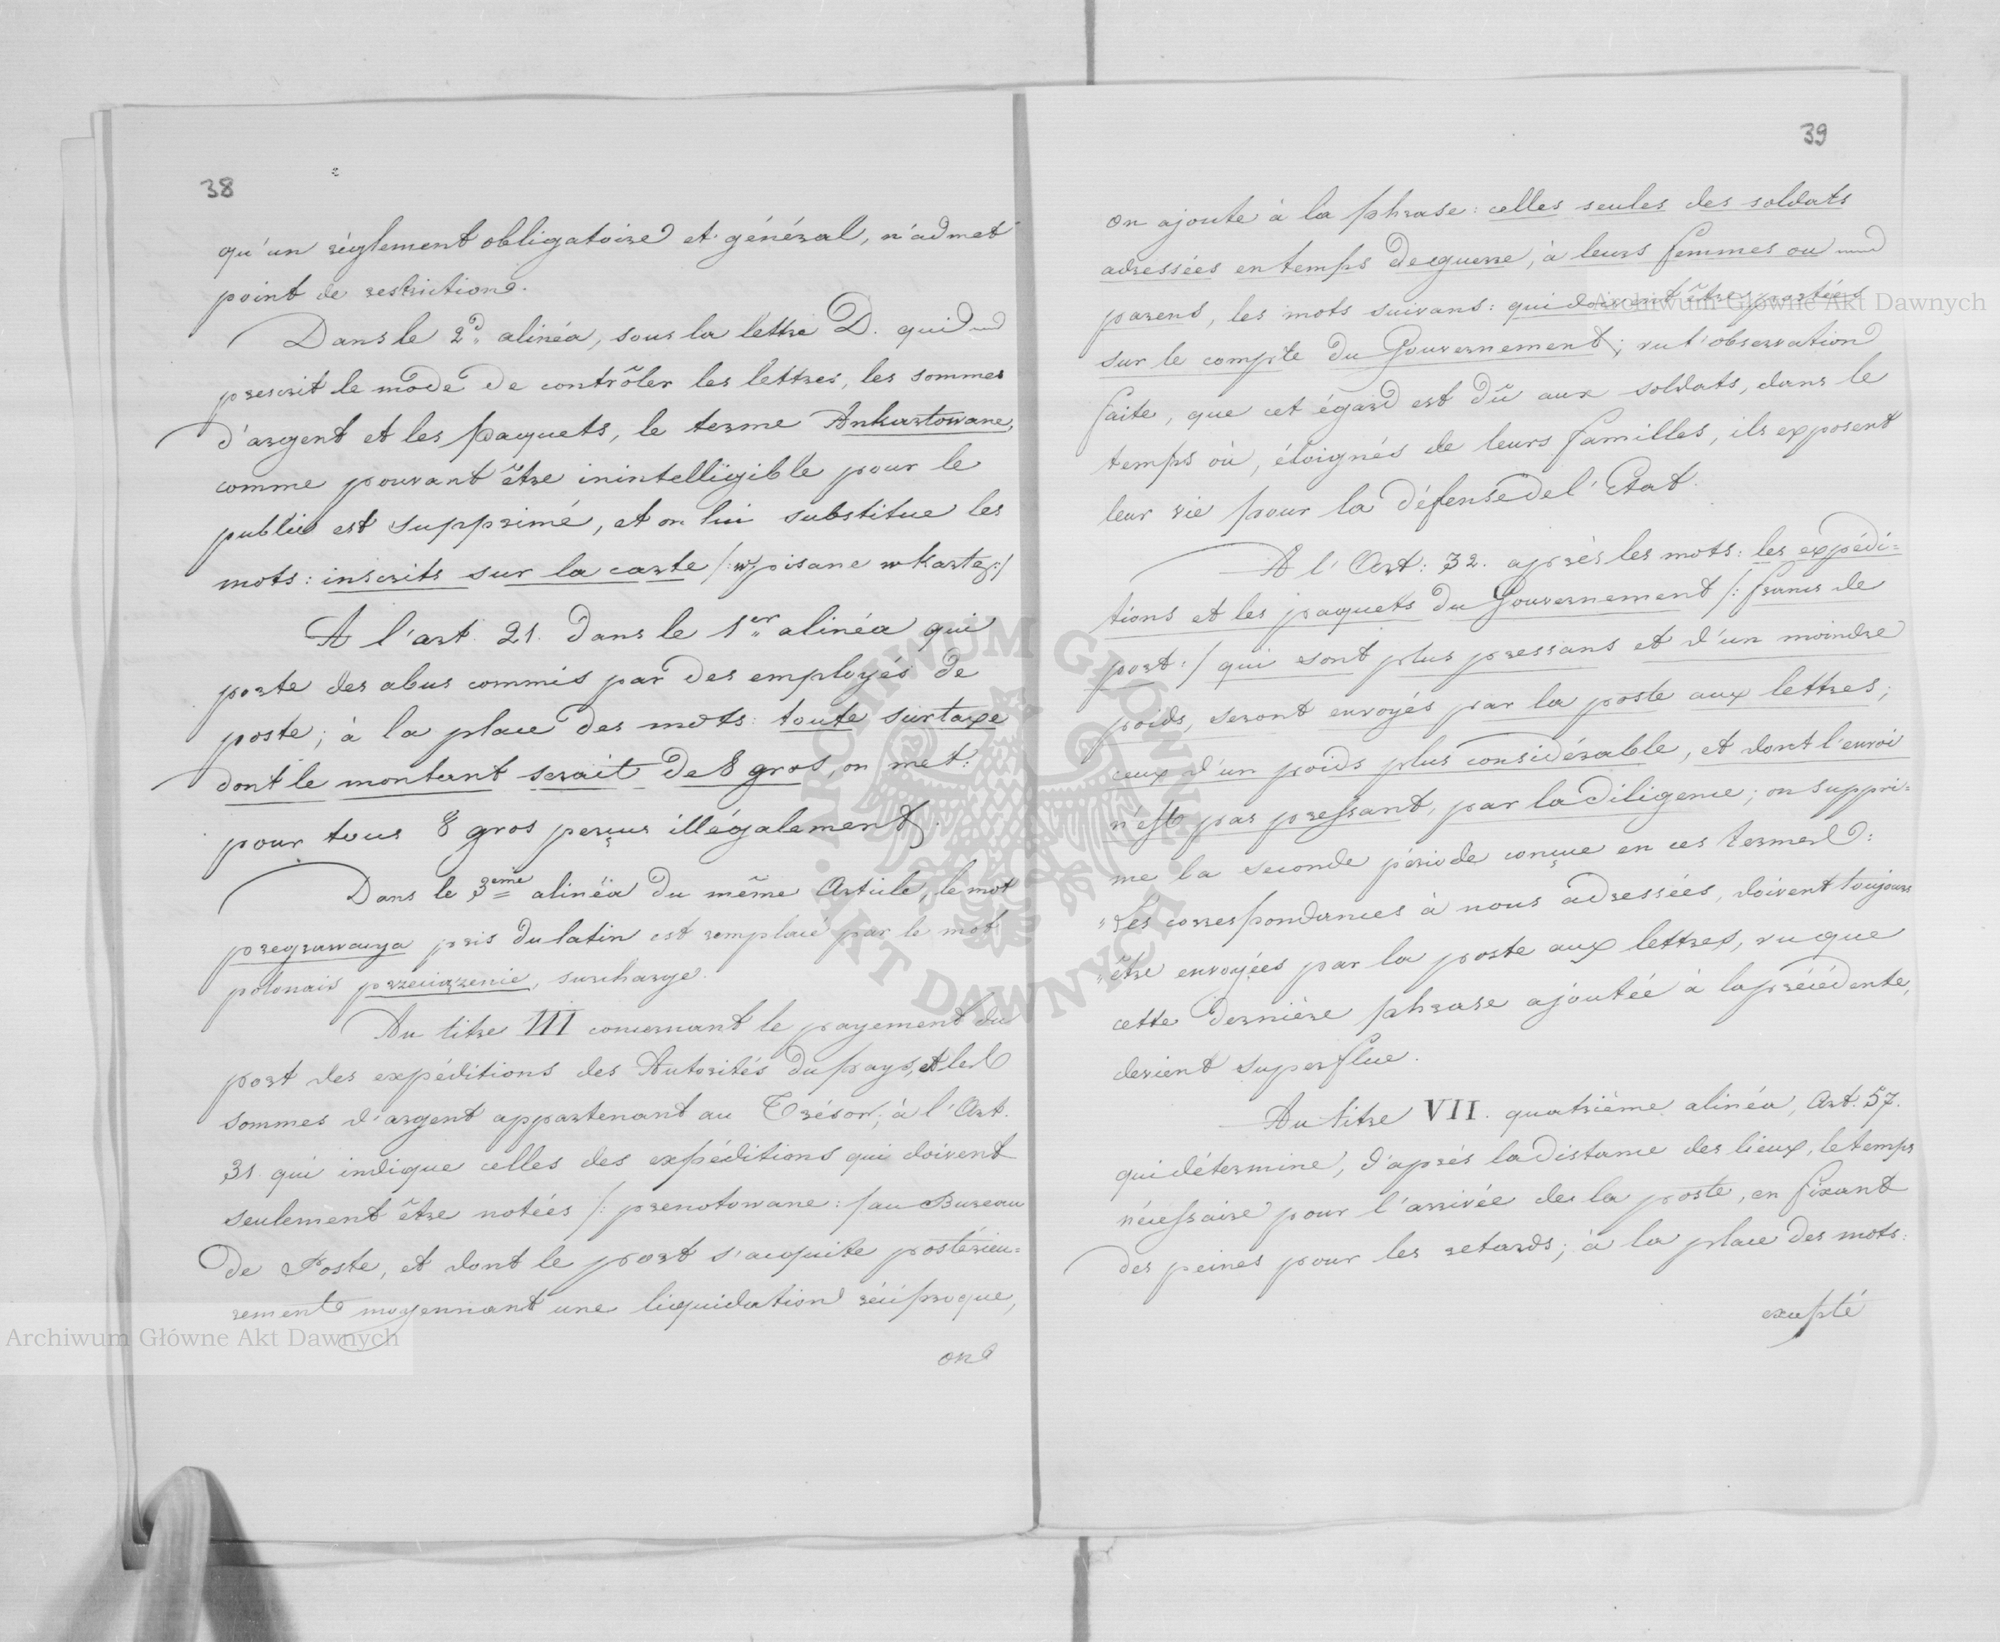 38
qu'un réglement obligatoire et général, n'admet
point de restriction.
Dans le 2d alinéa, sous la lettre D. qui
prescrit le mode de contrôler les lettres, les sommes
d'argent et les paquets, le terme Ankartowane,
comme pouvant être inintelligible pour le
public est supprimé, et on lui substitue les
mots: inscrits sur la carte /: wpisane w kartę :/
A l'art. 21. dans le 1er alinéa qui
porte des abus commis par des employés de
poste; à la place des mots: toute surtaxe
dont le montant serait de 8 gros, on met:
pour tous 8 gros perçus illégalement.
Dans le 3ème alinéa du même Article, le mot
pregrawacya pris du latin est remplacé par le mot
polonais przeciążenie, surcharge.
Au titre III concernant le payement du
port des expéditions des Autorités du pays, et les
sommes d'argent appartenant au Trésor; à l'Art.
31. qui indique celles des expéditions qui doivent
seulement être notées /: prenotowane :/ au Bureau
de Poste, et dont le port s'acquite postérieu=
rement moyennant une liquidation réciproque,
on
39
on ajoute à la phrase: celles seules des soldats
adressées en temps de guerre, à leurs femmes ou
parens, les mots suivans: qui doivent être portées
sur le compte du Gouvernement; vu l'observation
faite, que cet égard est dû aux soldats, dans le
temps où, éloignés de leurs familles, ils exposent
leur vie pour la défense de l'Etat.
A l'Art: 32. après les mots: les expédi=
tions et les paquets du Gouvernement /: francs de
port :/ qui sont plus pressans et d'un moindre
poids, seront envoyés par la poste aux lettres;
ceux d'un poids plus considérable, et dont l'envoi
n'est pas pressant, par la diligence; on suppri=
me la seconde période conçue en ces termes:
"Les correspondances à nous adressées, doivent toujours
"être envoyées par la poste aux lettres, vu que
cette dernière phrase ajoutée à la précédente,
devient superflue.
Au titre VII. quatrième alinéa, Art. 57.
qui détermine, d'après la distance des lieux, le temps
nécessaire pour l'arrivée de la poste, en fixant
des peines pour les retards; à la place des mots:
excepté
Archiwum Główne Akt Dawnych
Archiwum Główne Akt Dawnych
ARCHIWUM GŁÓWNE AKT DAWNYCH